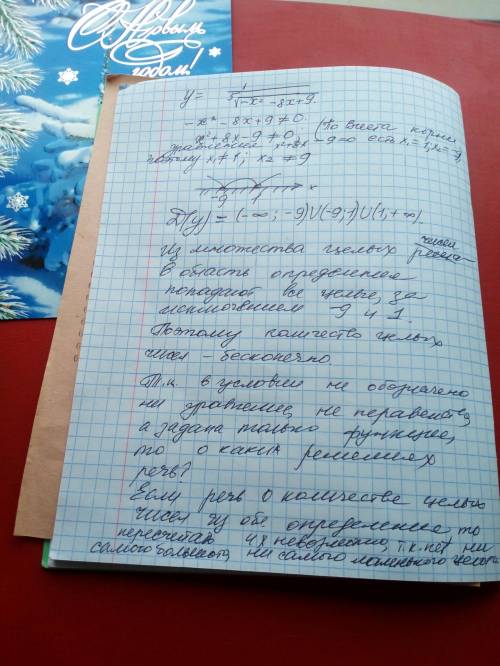 С Новым
годом!
y = 1/∛(-x² - 8x + 9)
-x² - 8x + 9 ≠ 0
x² + 8x - 9 ≠ 0 (По Виета корни
уравнения x² + 8x - 9 = 0 есть x₁ = 1; x₂ = -9,
поэтому x₁ ≠ 1; x₂ ≠ 9
-9 1 x
D(y) = (-∞; -9)∪(-9; 1)∪(1; +∞)
Из множества целых чисел
В область определения
попадают все целые, за
исключением -9 и 1.
Поэтому количество целых
чисел - бесконечно.
Т.к. в условии не обозначено
ни уравнение, не неравенство,
а задана только функция,
то о каких решениях
речь?
Если речь о количестве целых
чисел из обл определение то
пересчитать их невозможно, т.к. нет ни
самого большого, ни самого маленького целого